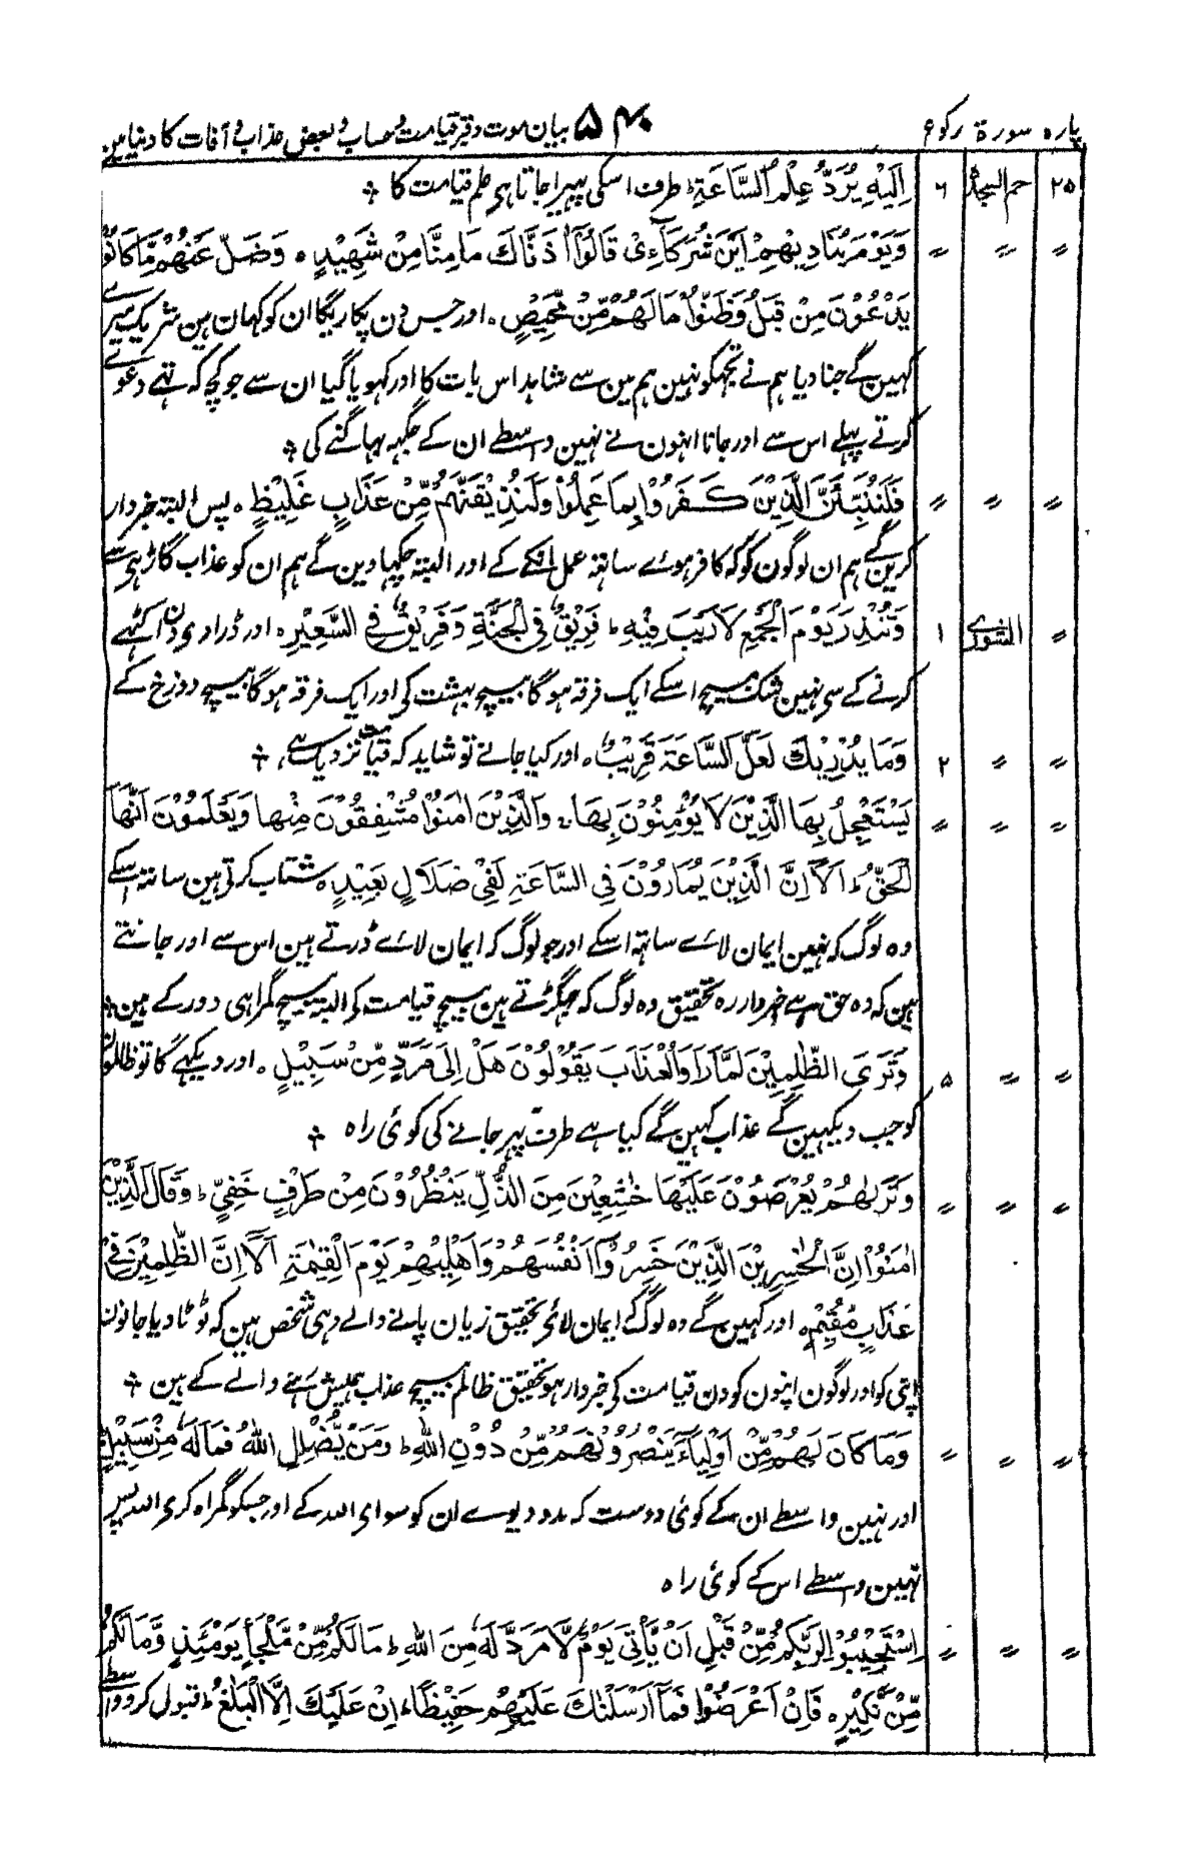 پارہ سورۃ رکوع ۵۴ بیان موت و قبر و قیامت و حساب و بعض عذاب و آفات کا دنیا مین
۲۵ حم السجدۃ ۶ اِلَيْهِ يُرَدُّ عِلْمُ السَّاعَةِ ؕ طرف اسکی پھیرا جاتا ہی علم قیامت کا ؞
〃 〃 〃 وَيَوْمَ يُنَادِيْهِمْ اَيْنَ شُرَكَآءِىْ قَالُوْٓا اٰذَنّٰكَ مَا مِنَّا مِنْ شَهِيْدٍ ۰ وَضَلَّ عَنْهُمْ مَّا كَانُوْا
يَدْعُوْنَ مِنْ قَبْلُ وَظَنُّوْا مَا لَهُمْ مِّنْ مَّحِيْصٍ ۰ اور جس دن پکاریگا ان کو کہان ہین شریک میرے
کہین گے جنا دیا ہم نے تجہکو نہین ہم مین سے شاہد اس بات کا اور کہویا گیا ان سے جو کچہ کہ تہے دعوے
کرتے پہلے اس سے اور جانا انہون نے نہین واسطے ان کے جگہہ بہاگنے کی ؞
〃 〃 〃 فَلَنُنَبِّئَنَّ الَّذِيْنَ كَفَرُوْا بِمَا عَمِلُوْا وَلَنُذِيْقَنَّهُمْ مِّنْ عَذَابٍ غَلِيْظٍ ۰ پس البتہ خبردار
کرین گے ہم ان لوگون کو کہ کافر ہوئے ساتھ عمل انکے کے اور البتہ چکہا دین گے ہم ان کو عذاب گاڑہی سے
〃 الشورٰے ۱ وَتُنْذِرَ يَوْمَ الْجَمْعِ لَا رَيْبَ فِيْهِ ؕ فَرِيْقٌ فِى الْجَنَّةِ وَفَرِيْقٌ فِى السَّعِيْرِ ۰ اور ڈراوی دن اکٹہے
کرنے کے سی نہین شک بیچ اسکے ایک فرقہ ہوگا بیچ بہشت کی اور ایک فرقہ ہوگا بیچ دوزخ کے
〃 〃 ۲ وَمَا يُدْرِيْكَ لَعَلَّ السَّاعَةَ قَرِيْبٌ ۰ اور کیا جانے تو شاید کہ قیامت نزدیک ہے ؞
〃 〃 〃 يَسْتَعْجِلُ بِهَا الَّذِيْنَ لَا يُؤْمِنُوْنَ بِهَا ۰ وَالَّذِيْنَ اٰمَنُوْا مُشْفِقُوْنَ مِنْهَا وَيَعْلَمُوْنَ اَنَّهَا
الْحَقُّ ؕ اَلَآ اِنَّ الَّذِيْنَ يُمَارُوْنَ فِى السَّاعَةِ لَفِىْ ضَلَالٍ بَعِيْدٍ ۰ شتاب کرتی ہین ساتہ اسکے
وہ لوگ کہ نہین ایمان لائے ساتہ اسکے اور جو لوگ کہ ایمان لائے ڈرتے ہین اس سے اور جانتے
ہین کہ وہ حق ہے خبردار رہ تحقیق وہ لوگ کہ جہگڑتے ہین بیچ قیامت کی البتہ بیچ گمراہی دور کے ہین ؞
〃 〃 ۵ وَتَرَى الظّٰلِمِيْنَ لَمَّا رَاَوُا الْعَذَابَ يَقُوْلُوْنَ هَلْ اِلٰى مَرَدٍّ مِّنْ سَبِيْلٍ ۰ اور دیکہے گا تو ظالمون
کو جب دیکہین گے عذاب کہین گے کیا ہے طرف پہر جانے کی کوئی راہ ؞
〃 〃 〃 وَتَرٰىهُمْ يُعْرَضُوْنَ عَلَيْهَا خٰشِعِيْنَ مِنَ الذُّلِّ يَنْظُرُوْنَ مِنْ طَرْفٍ خَفِيٍّ ؕ وَقَالَ الَّذِيْنَ
اٰمَنُوْٓا اِنَّ الْخٰسِرِيْنَ الَّذِيْنَ خَسِرُوْٓا اَنْفُسَهُمْ وَاَهْلِيْهِمْ يَوْمَ الْقِيٰمَةِ اَلَآ اِنَّ الظّٰلِمِيْنَ فِىْ
عَذَابٍ مُّقِيْمٍ ۰ اور کہین گے وہ لوگ کہ ایمان لائی تحقیق زیان پانے والے وہی شخص ہین کہ ٹوٹا دیا جانون
اپنی کو اور لوگون اپنون کو دن قیامت کی خبردار ہو تحقیق ظالم بیچ عذاب ہمیش رہنے والے کے ہین ؞
〃 〃 〃 وَمَا كَانَ لَهُمْ مِّنْ اَوْلِيَآءَ يَنْصُرُوْنَهُمْ مِّنْ دُوْنِ اللّٰهِ ؕ وَمَنْ يُّضْلِلِ اللّٰهُ فَمَا لَهٗ مِنْ سَبِيْلٍ
اور نہین واسطے ان کے کوئی دوست کہ مدد دیوے ان کو سوای اللہ کے اور جسکو گمراہ کری اللہ پس
نہین واسطے اس کے کوئی راہ
〃 〃 〃 اِسْتَجِيْبُوْا لِرَبِّكُمْ مِّنْ قَبْلِ اَنْ يَّاْتِىَ يَوْمٌ لَّا مَرَدَّ لَهٗ مِنَ اللّٰهِ ؕ مَا لَكُمْ مِّنْ مَّلْجَاٍ يَّوْمَئِذٍ وَّمَا لَكُمْ
مِّنْ نَّكِيْرٍ ۰ فَاِنْ اَعْرَضُوْا فَمَآ اَرْسَلْنٰكَ عَلَيْهِمْ حَفِيْظًا ؕ اِنْ عَلَيْكَ اِلَّا الْبَلٰغُ ؕ قبول کرو واسطے